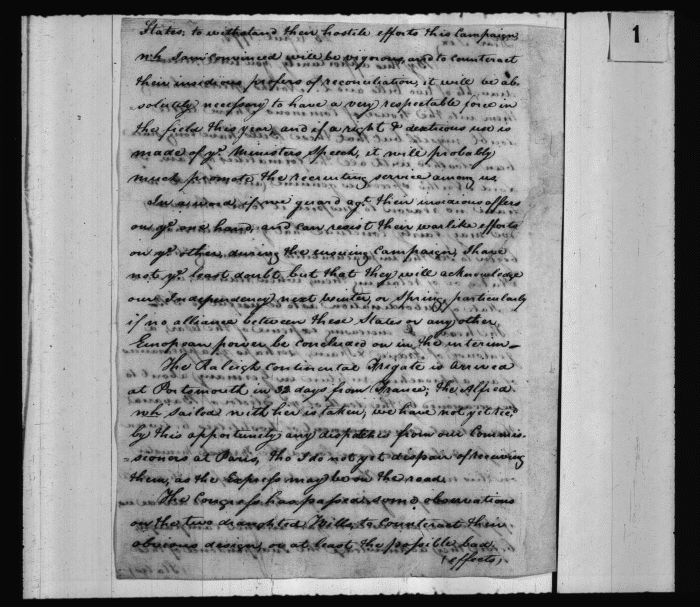 States, to withstand their hostile efforts this Campaign
wh. I am convinced will be vigorous, and to counteract
their insidious proffers of reconciliation, it will be ab-
solutely necessary to have a very respectable force in
the field this year, and if a right & dextrous use is
made of yᵉ Ministers Speech, it will probably
much promote the recruiting service among us
In a word, if we guard agᵗ their insidious offers
on yᵉ one hand, and can resist their warlike efforts
on yᵉ other, during the ensuing Campaign, I have
not yᵉ least doubt, but that they will acknowledge
our Independency next Winter, or Spring, particularly
if no alliance between these States or any other
European power be concluded on in the interim—
The Raleigh continental Frigate is arrived
at Portsmouth in 32 days from France; the Alfred
wh. sailed with her is taken; we have not yet rec'd
by this opportunity any dispatches from our Commis-
-sioners at Paris, tho I do not yet despair of receiving
them, as the Express may be on the road.
The Congress has passed some observations
on the two draughted Bills, to counteract their
obvious design, or at least the possible bad
effects,
1